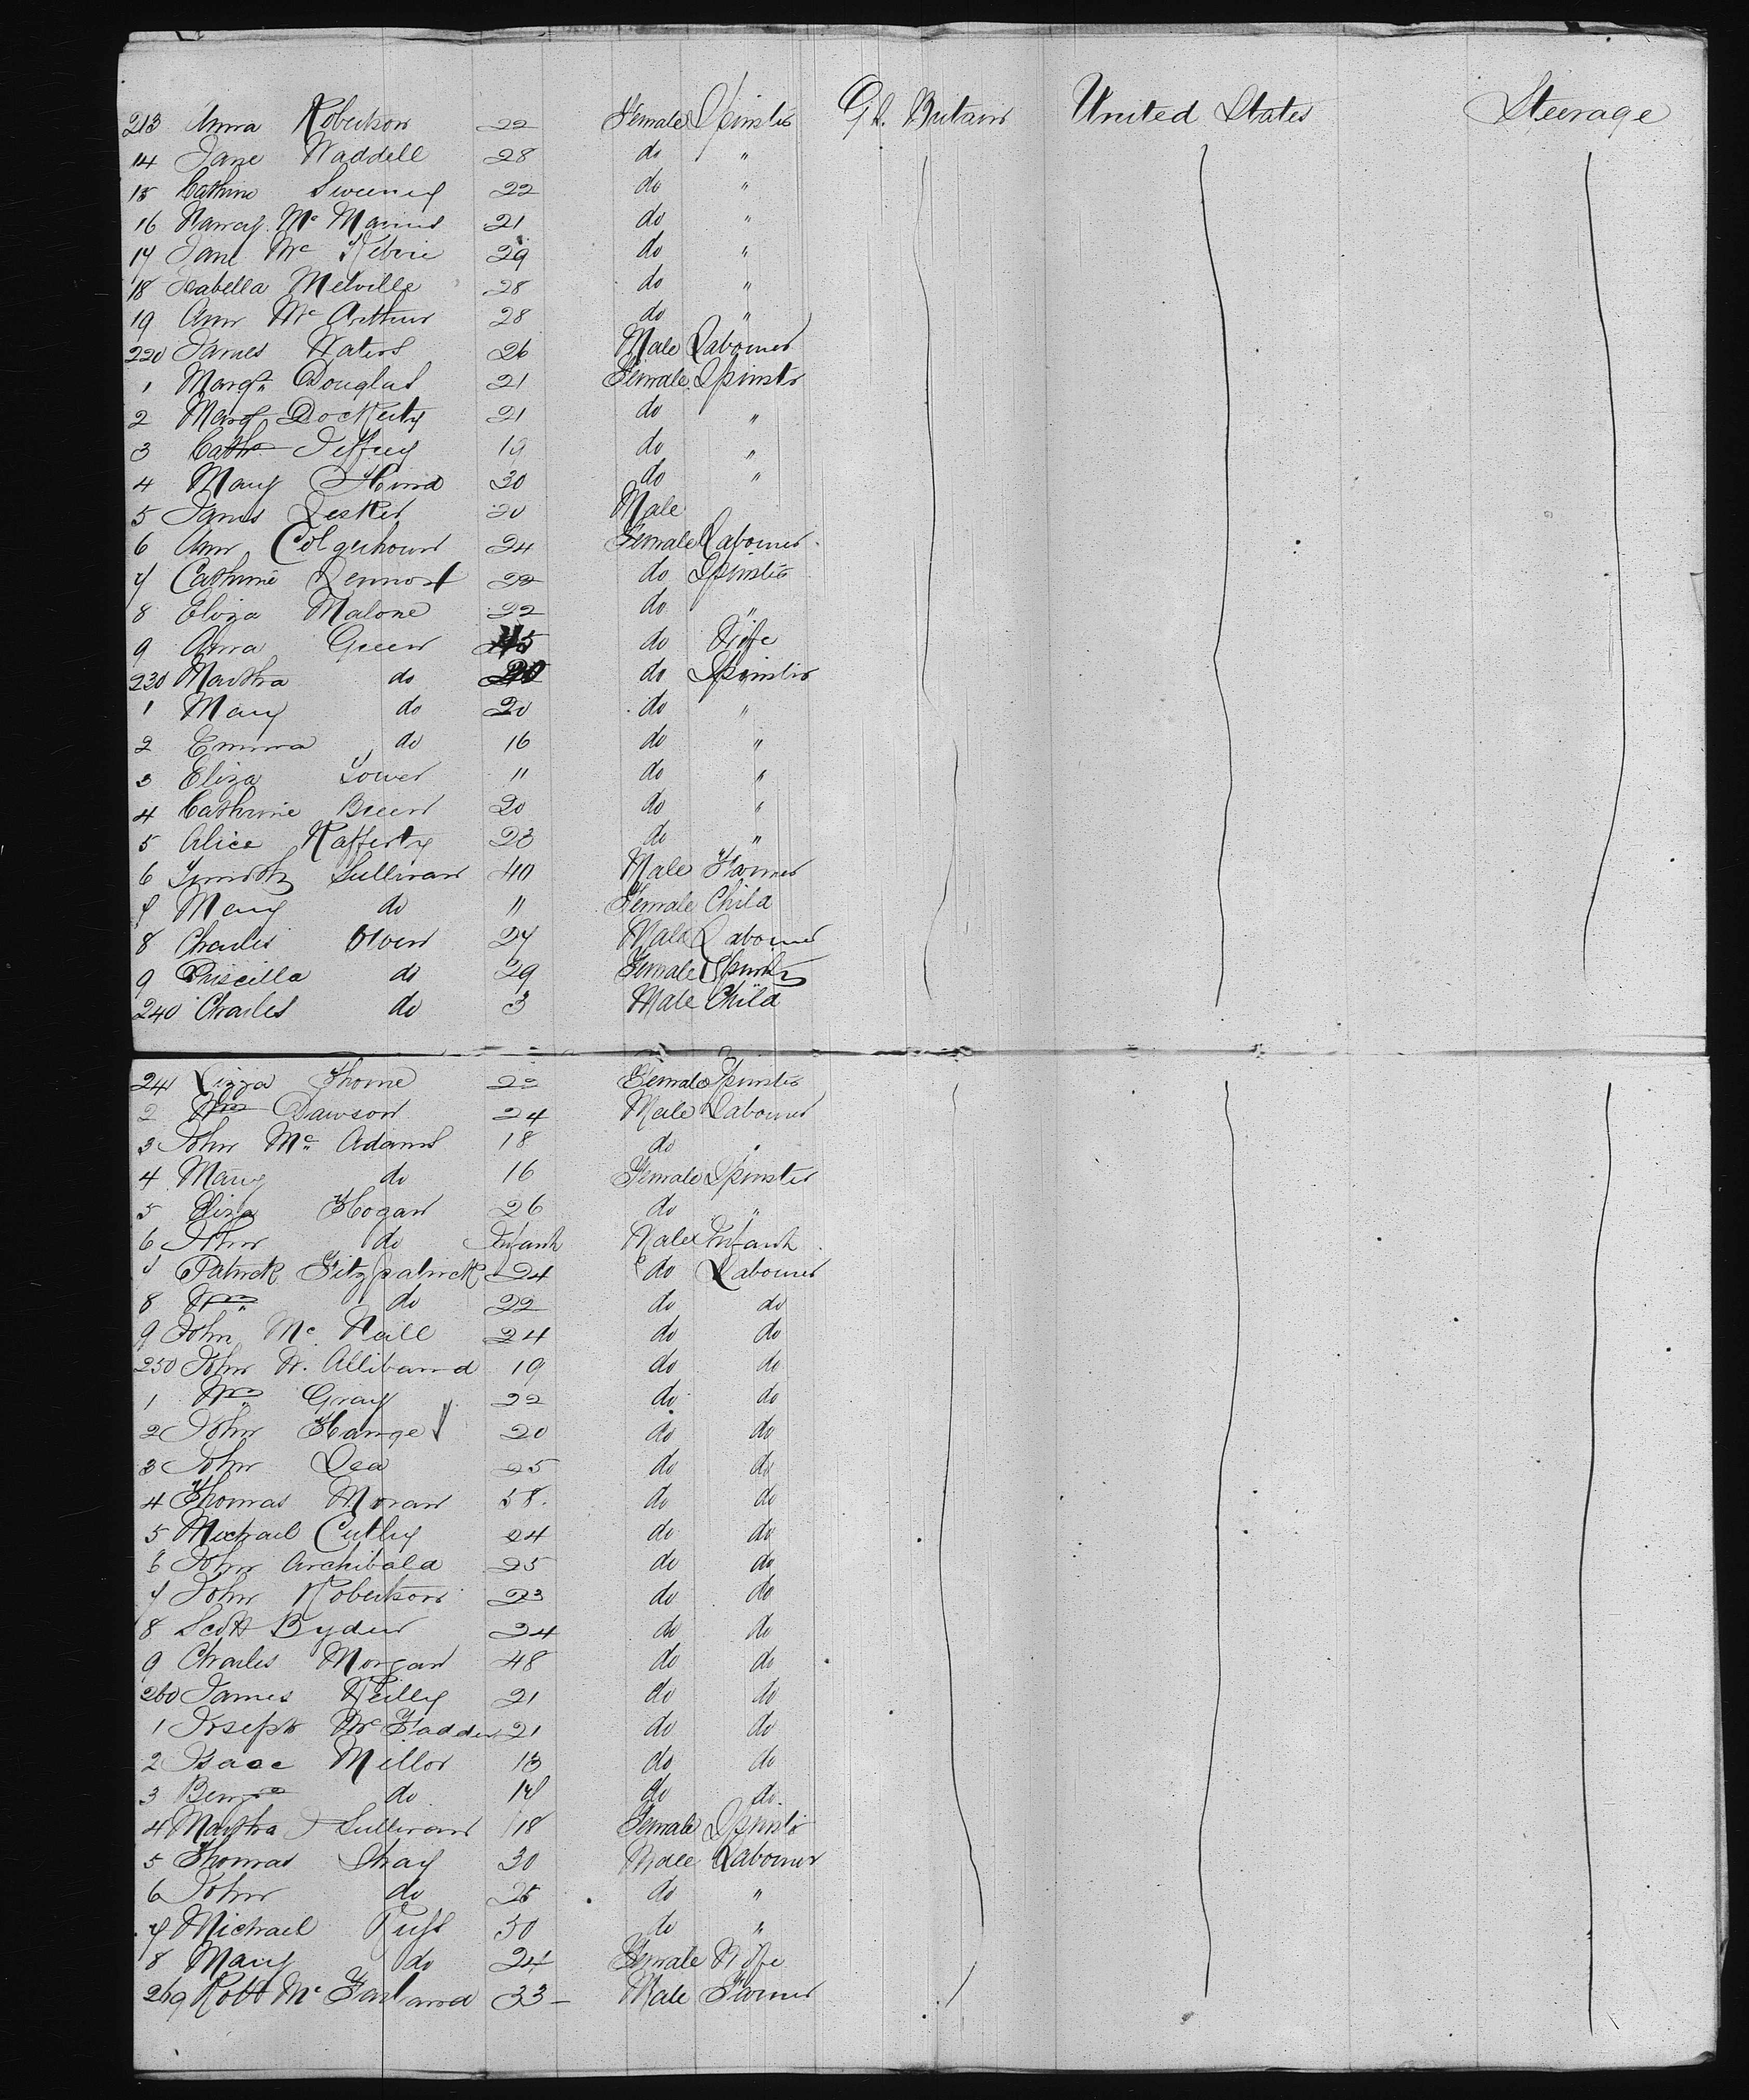 213 Anna Robertson 22 Female Spinster Gt. Britain United States Steerage
14 Jane Waddell 28 do "
15 Cathrine Sweeney 22 do "
16 Nancy Mc Manus 21 do "
17 Jane Mc 29 do "
18 Isabella Melville 28 do "
19 Ann Mc Arthur 28 do "
220 James Waters 26 Male Labourer
1 Margt Douglas 21 Female Spinster
2 Margt Dockerty 21 do "
3 Cath Jeffrey 19 do "
4 Mary Hind 30 do "
5 James 20 Male
6 Ann Colquhoun 24 Female Labourer
7 Cathrine Lennox 22 do Spinster
8 Eliza Malone 22 do "
9 Anna Green 45 do Wife
230 Martha do 20 do Spinster
1 Mary do 20 do "
2 Emma do 16 do "
3 Eliza Tower 11 do "
4 Cathrine Breen 20 do "
5 Alice Rafferty 23 do "
6 Timoth Sullivan 40 Male Farmer
7 Mary do 11 Female Child
8 Charles Owen 27 Male Labourer
9 Priscilla do 29 Female Spinstr
240 Charles do 3 Male Child
241 Lizza Thorne 22 Female Spinster
2 Wm Dawson 24 Male Labourer
3 John Mc Adams 18 do "
4 Mary do 16 Female Spinster
5 Eliza Hogan 26 do "
6 John do Infant Male Infant
7 Patrick Fitzpatrick 24 do Labourer
8 Wm do 22 do do
9 John Mc Neill 24 do do
250 John W. Alliband 19 do do
1 Wm Gray 22 do do
2 John 20 do do
3 John Lea 25 do do
4 Thomas Moran 38 do do
5 Michael 24 do do
6 John Archibald 25 do do
7 John Robertson 23 do do
8 Scott Byden 24 do do
9 Charles Morgan 48 do do
260 James Reilly 21 do do
1 Joseph Mc Fadden 21 do do
2 Isaac Mellor 13 do do
3 do do do
4 Martha Sullivan 18 Female Spinstr
5 Thomas Shay 30 Male Labourer
6 John do 25 do "
7 Michael 30 do "
8 Mary do 24 Female Wife
269 Robt Mc Farland 33 Male Farmer